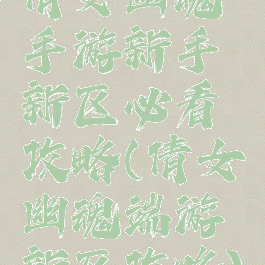 倩女幽魂
手游新手
新区必看
攻略(倩女
幽魂端游
新区攻略)